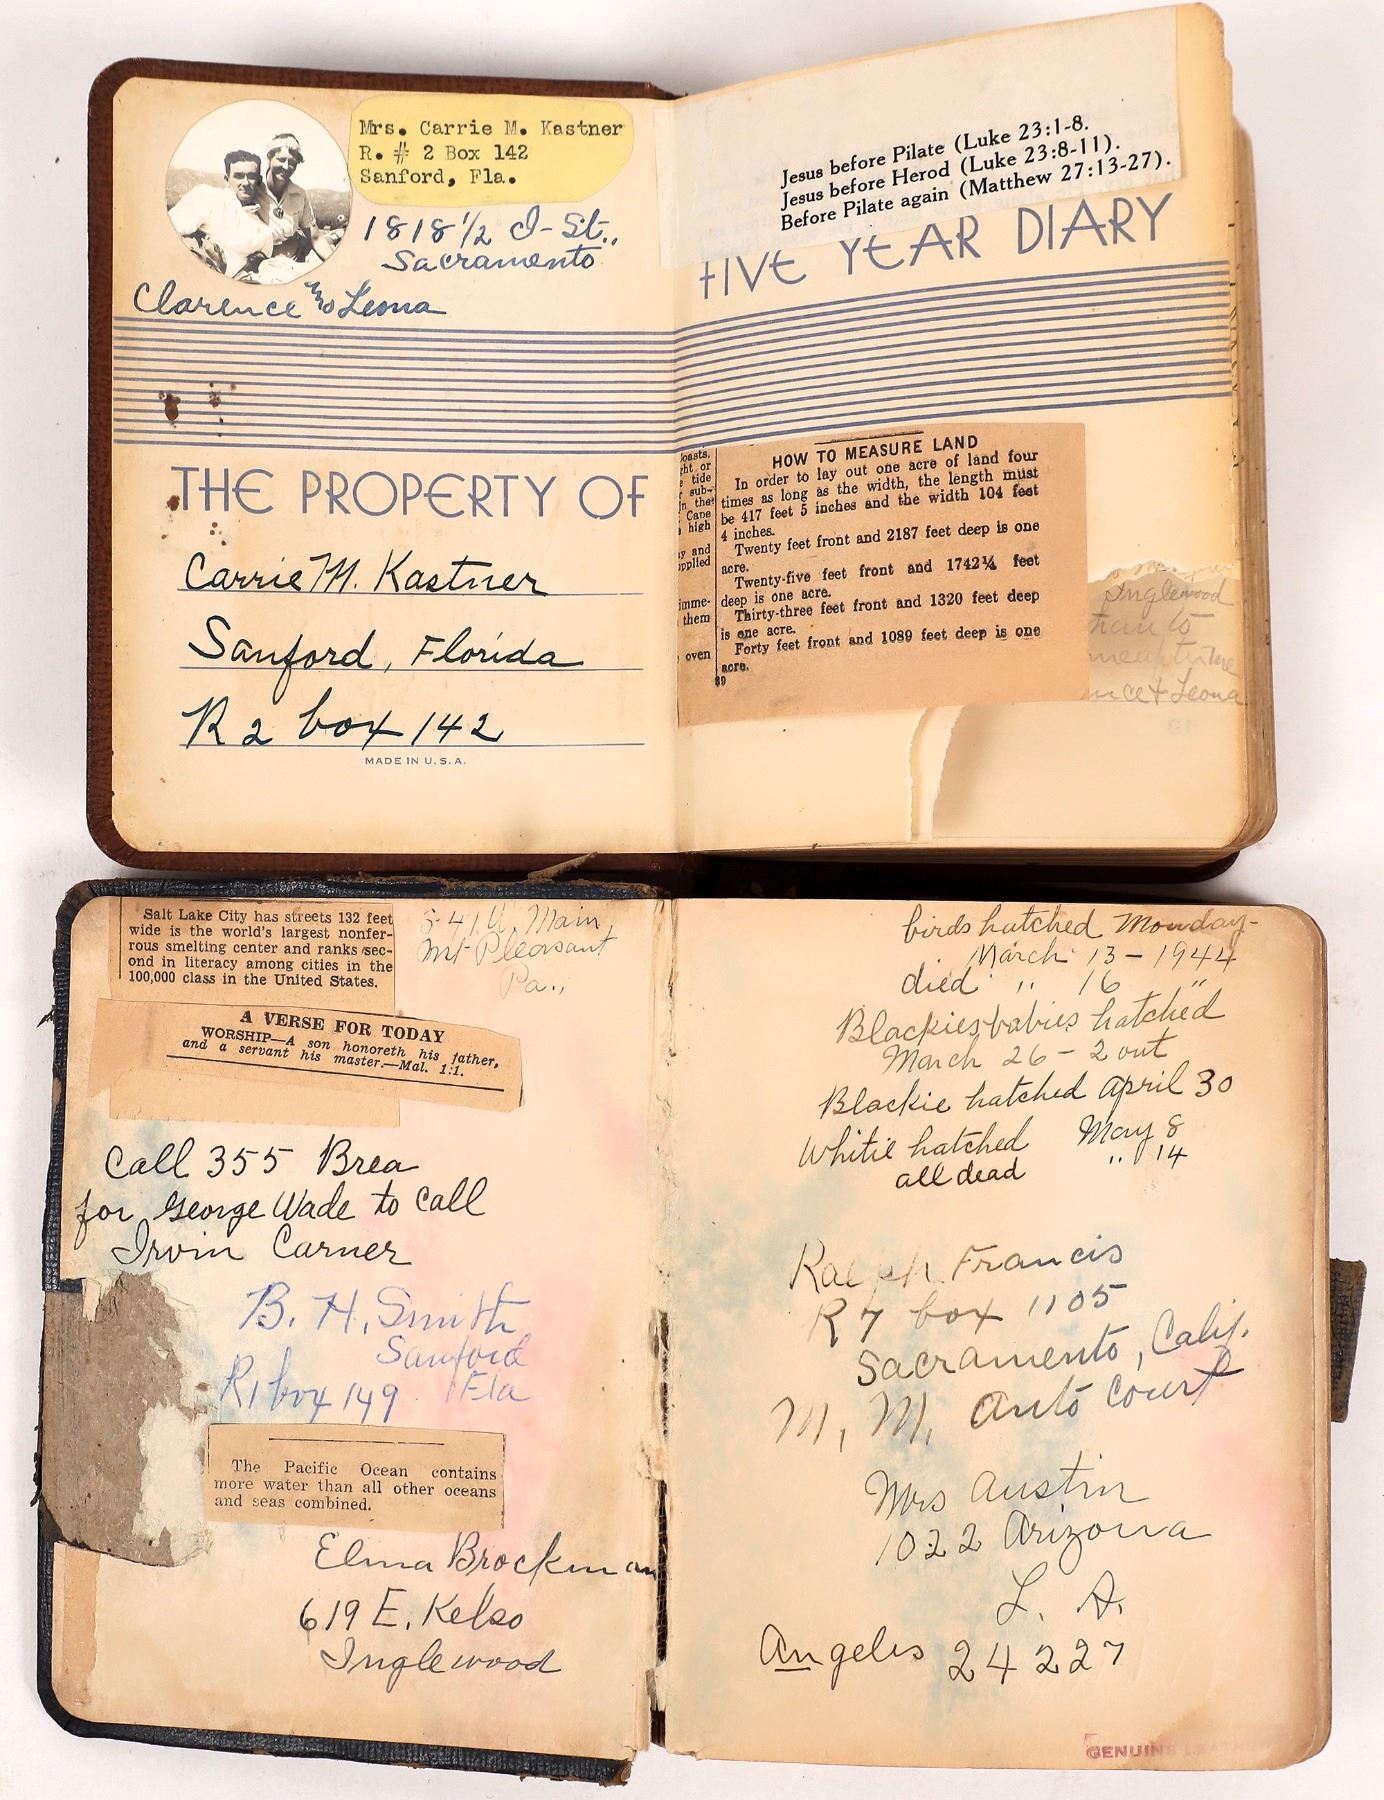 Mrs. Carrie M. Kastner
R. # 2 Box 142
Sanford, Fla.
1818 1/2 I-St.,
Sacramento
Clarence & Leona
THE PROPERTY OF
Carrie M. Kastner
Sanford, Florida
R 2 box 142
MADE IN U.S.A.
Jesus before Pilate (Luke 23:1-8.
Jesus before Herod (Luke 23:8-11).
Before Pilate again (Matthew 27:13-27).
FIVE YEAR DIARY
oasts,
ht or
tide
sub-
n the
Cape
high
y and
pplied
imme-
them
oven
HOW TO MEASURE LAND
In order to lay out one acre of land four
times as long as the width, the length must
be 417 feet 5 inches and the width 104 feet
4 inches.
Twenty feet front and 2187 feet deep is one
acre.
Twenty-five feet front and 1742¼ feet
deep is one acre.
Thirty-three feet front and 1320 feet deep
is one acre.
Forty feet front and 1089 feet deep is one
acre.
39
Inglewood
to
ce & Leona
Salt Lake City has streets 132 feet
wide is the world's largest nonfer-
rous smelting center and ranks sec-
ond in literacy among cities in the
100,000 class in the United States.
541 W. Main
Mt Pleasant
Pa.,
A VERSE FOR TODAY
WORSHIP—A son honoreth his father,
and a servant his master.—Mal. 1:1.
Call 355 Brea
for George Wade to call
Irvin Carner
B. H. Smith
Sanford
R1 box 149 Fla
The Pacific Ocean contains
more water than all other oceans
and seas combined.
Elma Brockman
619 E. Kelso
Inglewood
birds hatched Monday-
March 13 - 1944
died " 16 "
Blackies babies hatched
March 26 - 2 out
Blackie hatched April 30
Whitie hatched May 8
all dead " 14
Ralph Francis
R 7 box 1105
Sacramento, Calif.
M. M. Auto Court
Mrs Austin
1022 Arizona
L. A.
Angeles 24227
GENUINE